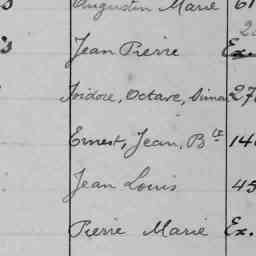 s Augustin Marie 61
s Jean Pierre Ex.
Isidore, Octave, Simon 27
Ernest, Jean, Bte 14
Jean Louis 45
Pierre Marie Ex.